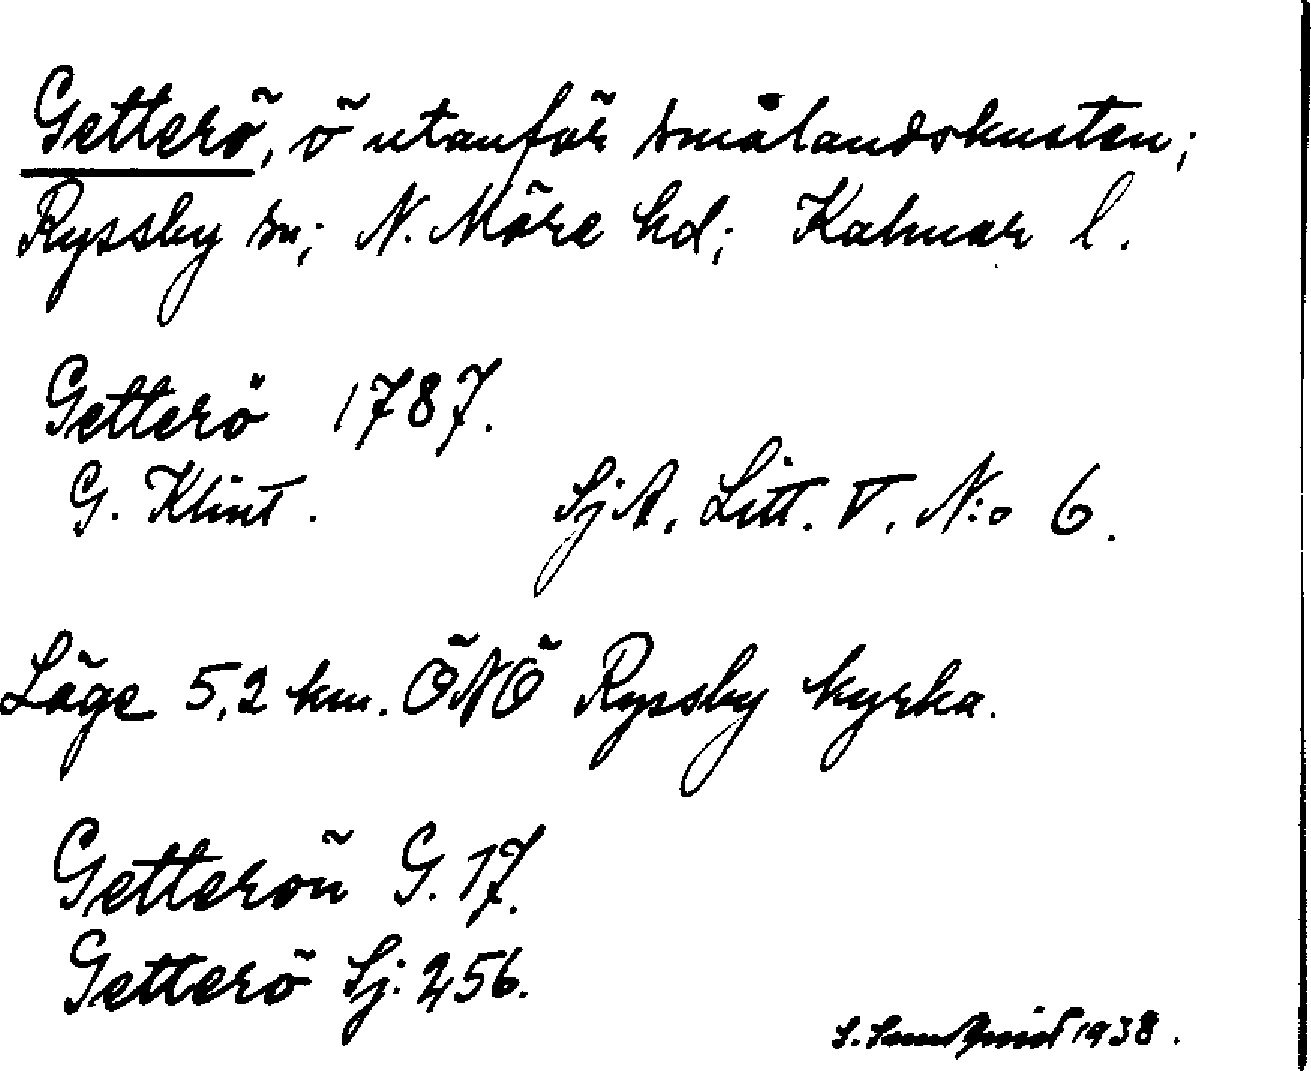 Getterö, ö utanför smålandskusten;
Ryssby sn; N. Möre hd; Kalmar l.
Getterö 1787.
G. Klint. SjA. Litt. V. N:o 6.
Läge 5,2 km. ÖNÖ Ryssby kyrka.
Getterön G. 17.
Getterö Sj: 256.
S. 1938.